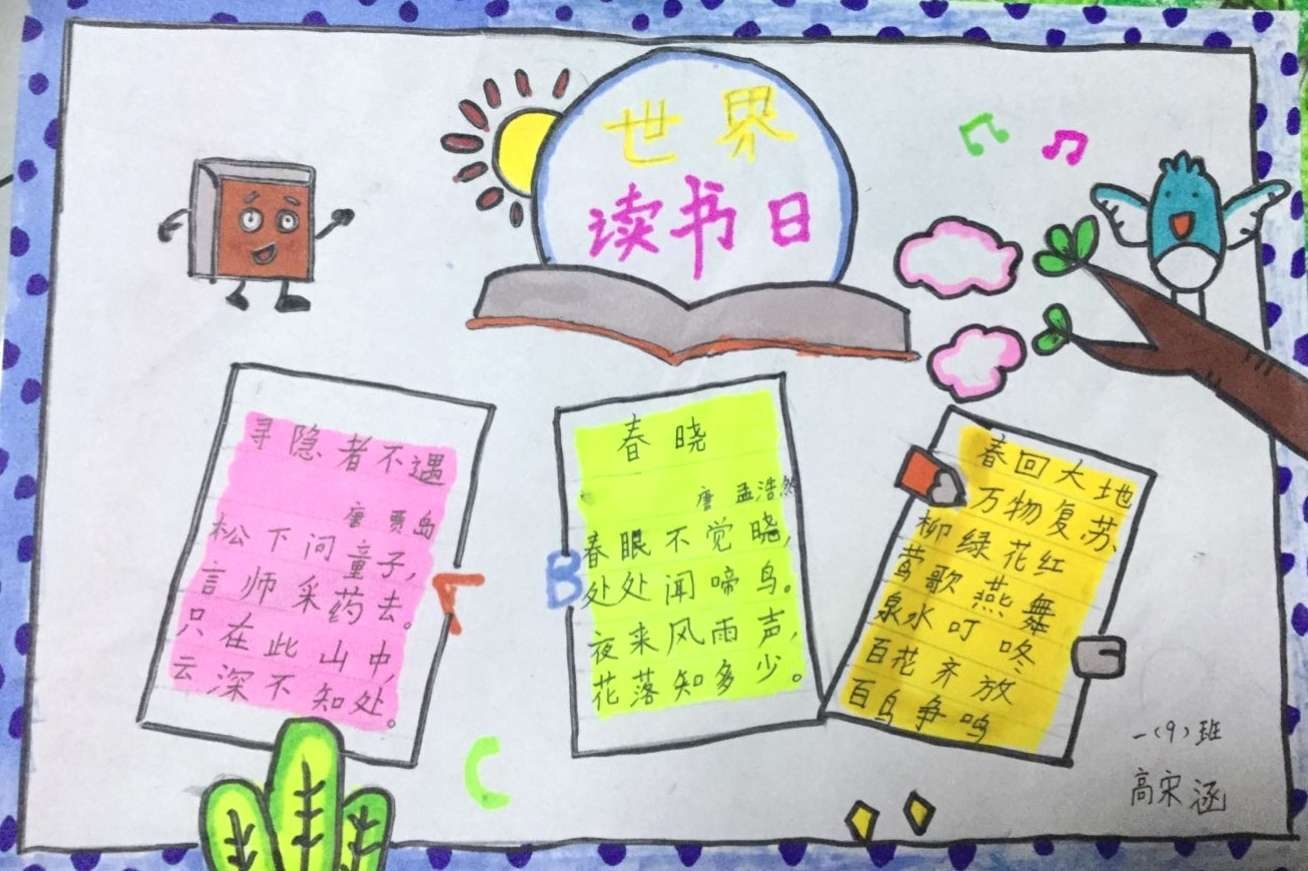 世界
读书日
寻隐者不遇
唐 贾岛
松下问童子,
言师采药去。
只在此山中,
云深不知处。
春晓
唐 孟浩然
春眠不觉晓,
处处闻啼鸟。
夜来风雨声,
花落知多少。
B
春回大地
万物复苏
柳绿花红
莺歌燕舞
泉水叮咚
百花齐放
百鸟争鸣
C
一(9)班
高宋涵